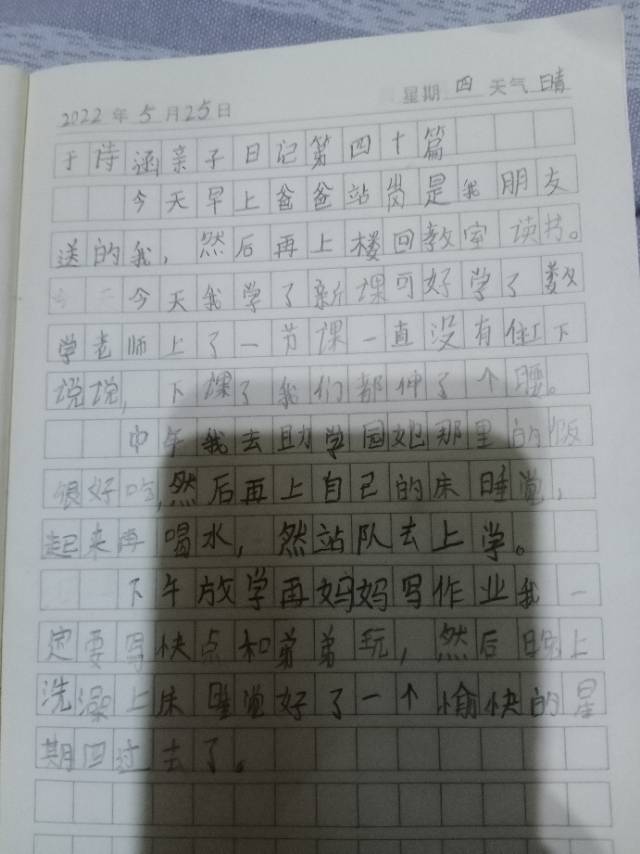 2022年5月25日 星期四 天气晴
于诗涵亲子日记第四十篇
今天早上爸爸站岗是我朋友
送的我，然后再上楼回教室读书。
今天我学了新课可好学了数
学老师上了一节课一直没有停下
说说，下课了我们都伸了个腰。
中午我去助学园她那里的饭
很好吃，然后再上自己的床睡觉，
起来再喝水，然站队去上学。
下午放学再妈妈写作业我一
定要写快点和弟弟玩，然后晚上
洗澡上床睡觉好了一个愉快的星
期四过去了。